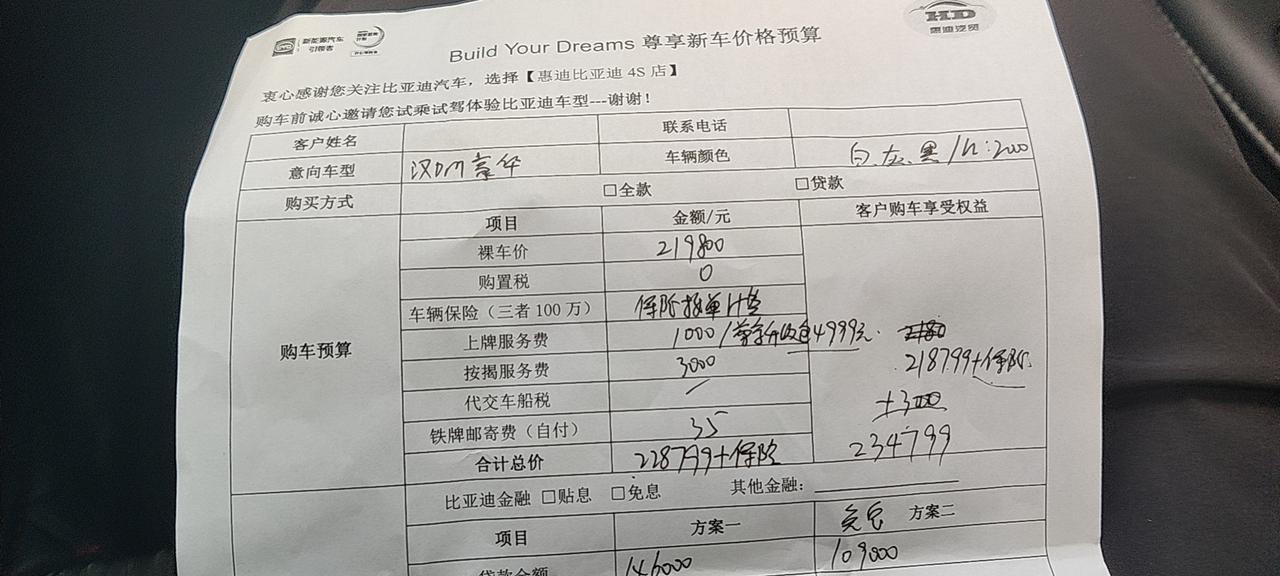 新能源汽车
引领者
HD
惠迪汽贸
Build Your Dreams 尊享新车价格预算
衷心感谢您关注比亚迪汽车，选择【惠迪比亚迪 4S 店】
购车前诚心邀请您试乘试驾体验比亚迪车型---谢谢！
客户姓名 联系电话
意向车型 汉DM豪华 车辆颜色 白.灰.黑/
购买方式 □全款 □贷款
购车预算 项目 金额/元 客户购车享受权益
裸车价 219800
购置税 0
车辆保险（三者 100 万） 保险按单计算
上牌服务费 1000/ 4999元.
按揭服务费 3000 218799+保险
代交车船税 /
铁牌邮寄费（自付） 35
合计总价 228799+保险 234799
比亚迪金融 □贴息 □免息 其他金融：
项目 方案一 免息 方案二
贷款金额 146000 109800